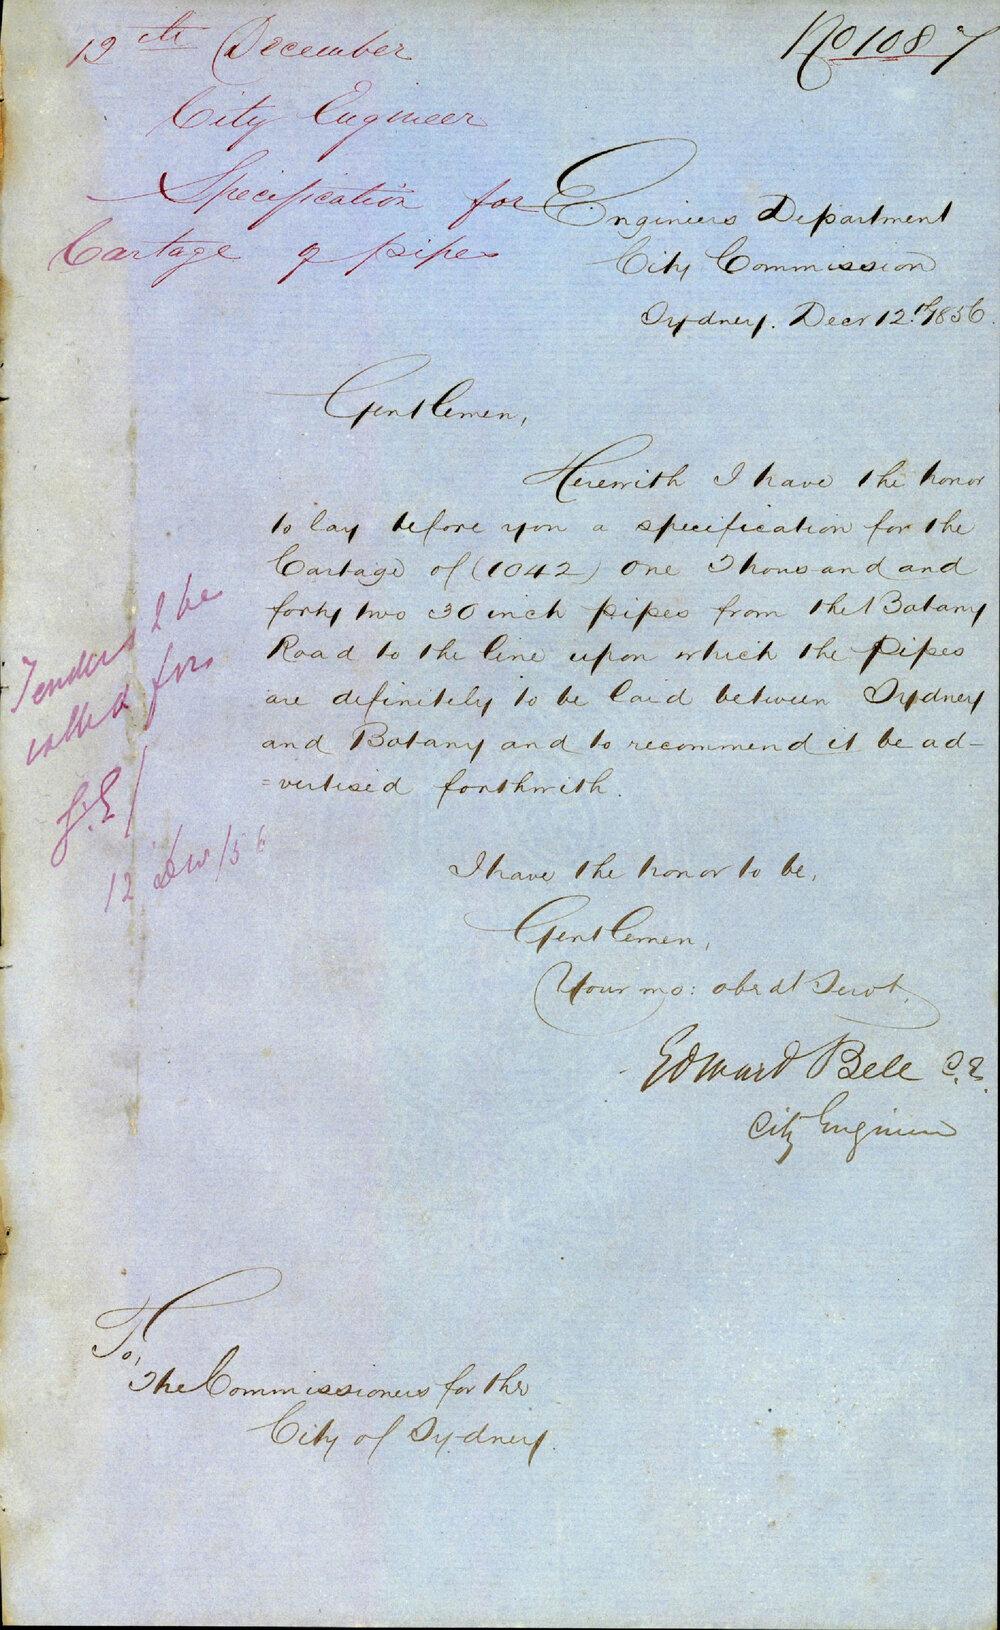 No 1087
12th December
City Engineer
Specification for
Cartage of pipes
Engineers Department
City Commission
Sydney. Decr 12th 1856
Gentlemen,
Herewith I have the honor
to lay before you a specification for the
Cartage of (1042) One Thousand and
forty two 30 inch pipes from the Botany
Road to the line upon which the Pipes
are definitely to be laid between Sydney
and Botany and to recommend it be ad-
=vertised forthwith.
Tenders to be
called for.
12 Decr/56
I have the honor to be,
Gentlemen,
Your mo: obedt Servt.
Edward Bell C.E.
City Engineer
To,
The Commissioners for the
City of Sydney.